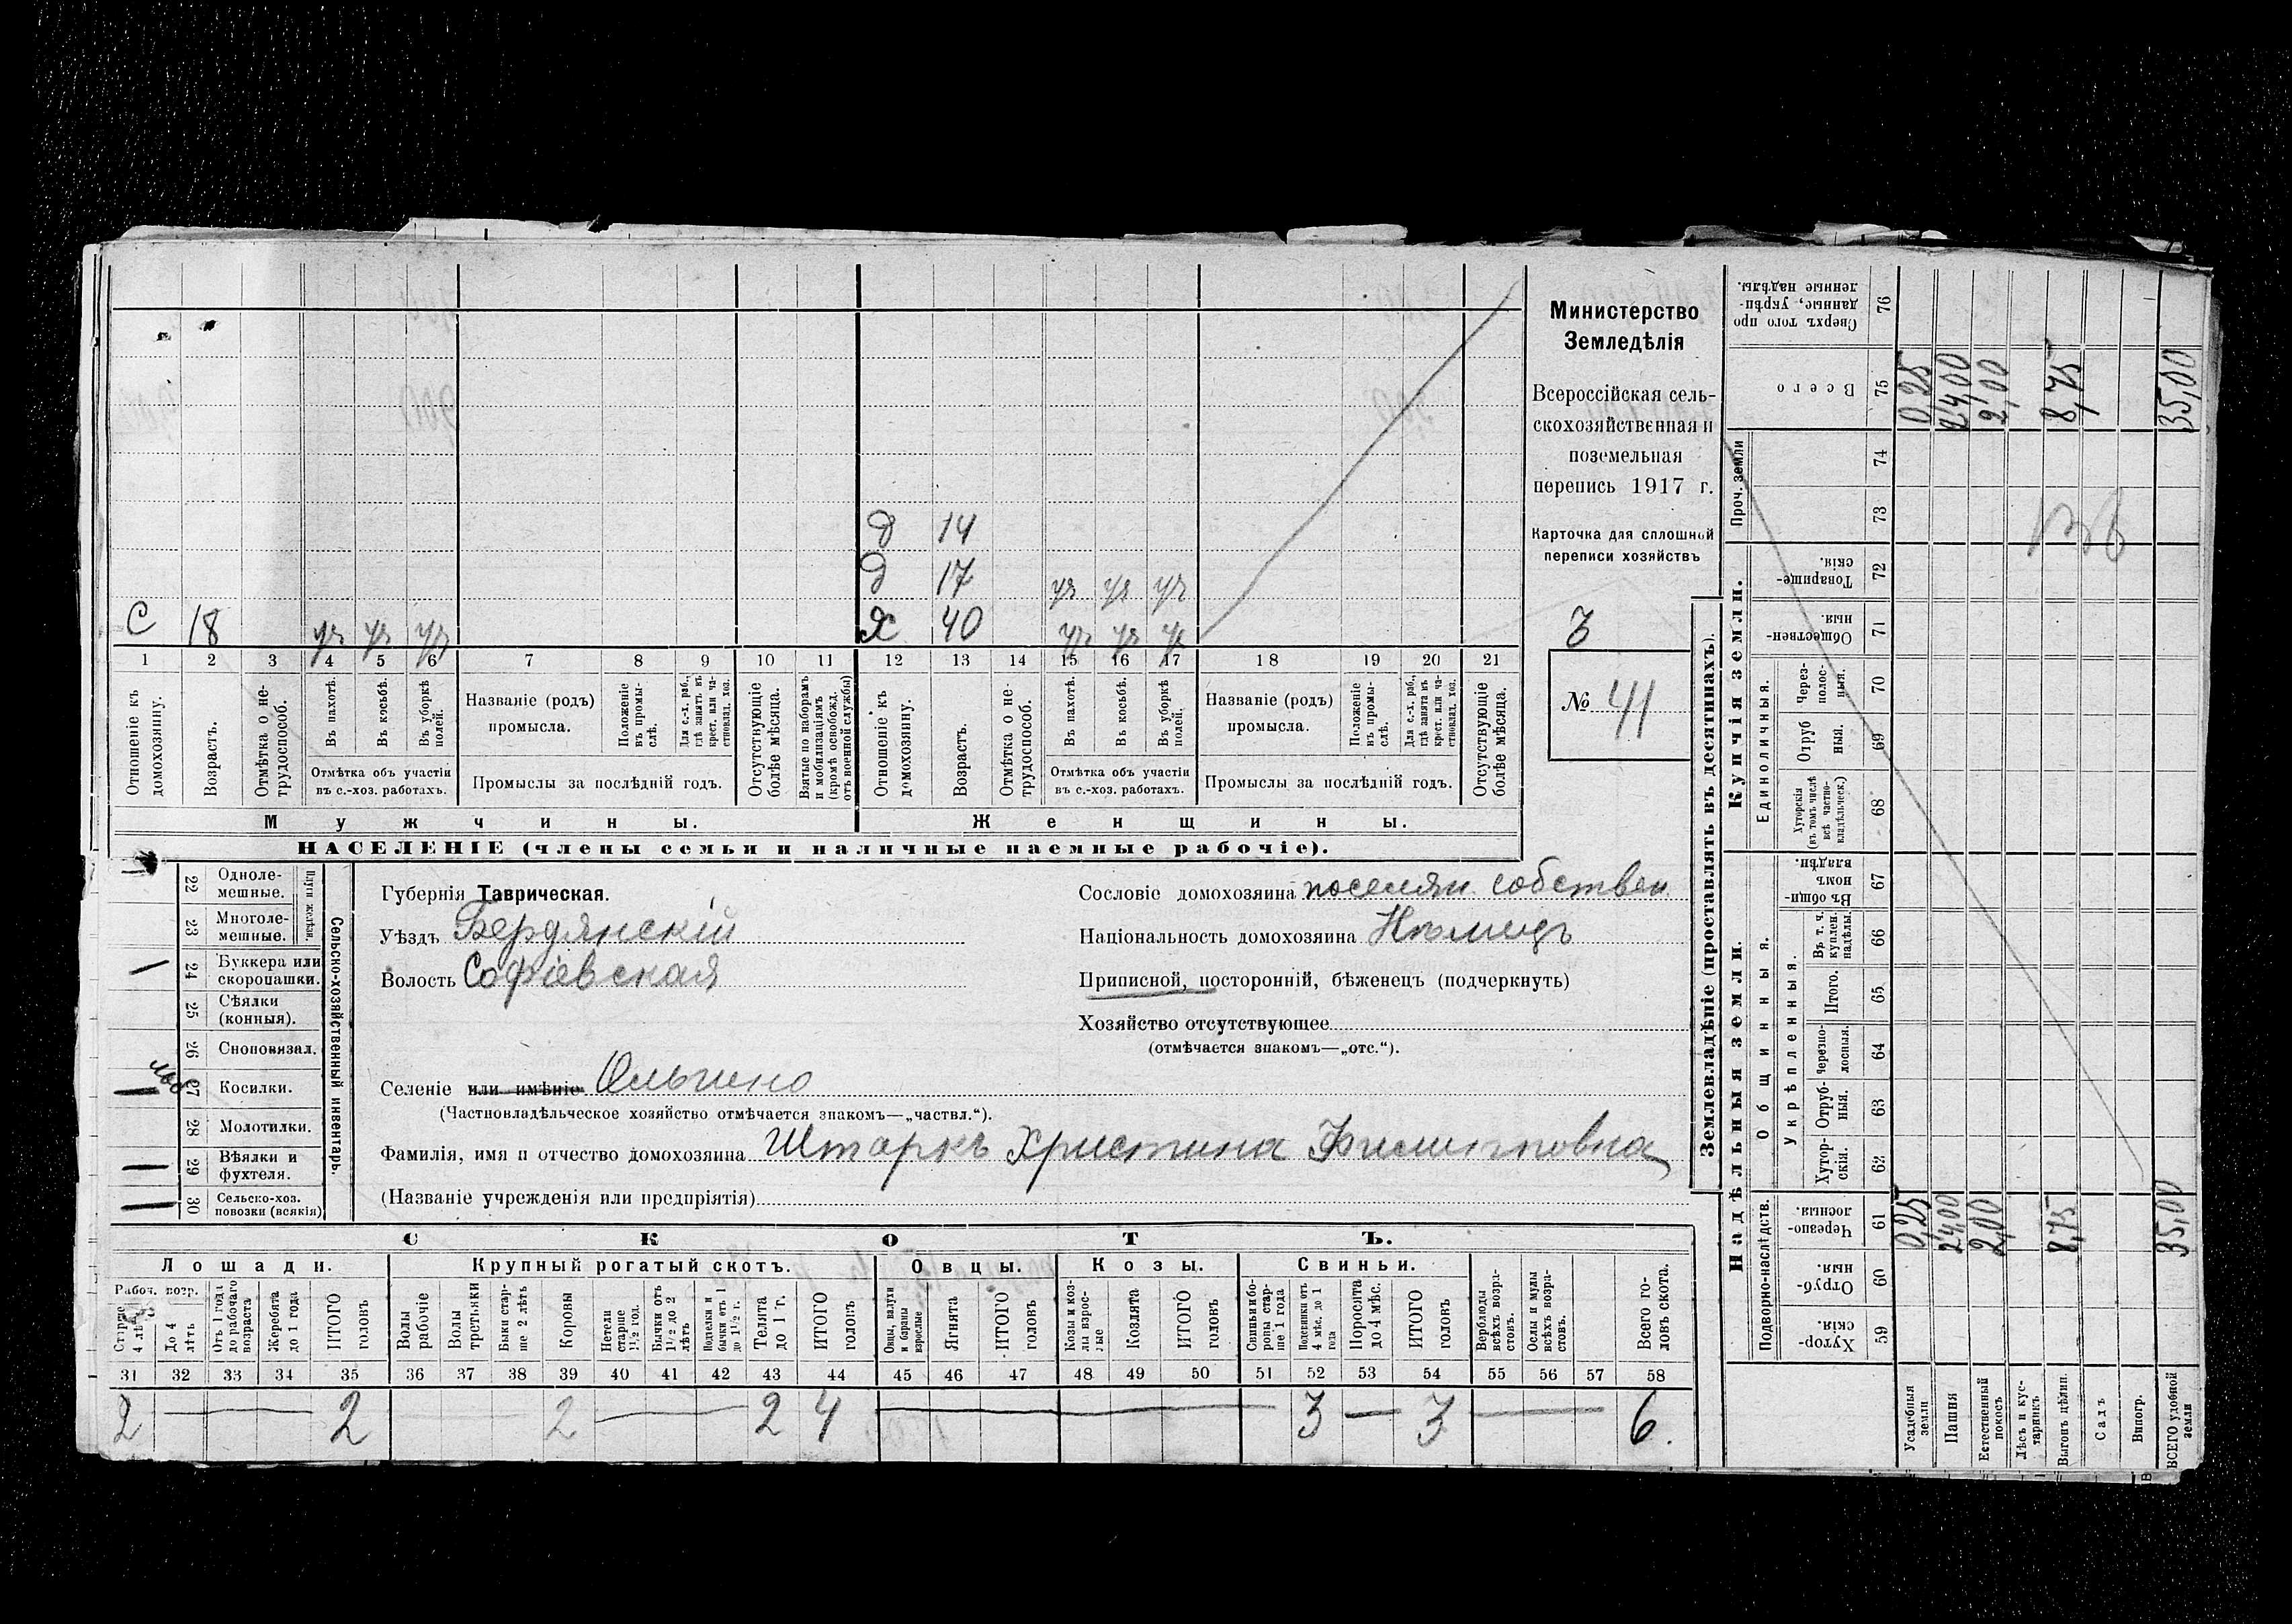 Министерство
Земледѣлія
Всероссійская сель-
скохозяйственная и
поземельная
перепись 1917 г.
Карточка для сплошной
переписи хозяйствъ
3
№ 41
д 14
д 17 уч уч уч
С 18 уч уч уч
Ж 40 уч уч уч
1 2 3 4 5 6 7 8 9 10 11 12 13 14 15 16 17 18 19 20 21
Отношеніе къ домохозяину.
Возрастъ.
Отмѣтка о не-трудоспособ.
Въ пахотѣ.
Въ косьбѣ.
Въ уборкѣ полей.
Отмѣтка объ участіи въ с.-хоз. работахъ.
Названіе (родъ) промысла.
Положеніе въ промы-слѣ.
Для с.-х. раб., гдѣ занятъ въ крест. или ча-стновлад. хоз.
Промыслы за послѣдній годъ.
Отсутствующіе болѣе мѣсяца.
Взятые по наборамъ и мобилизаціямъ (кромѣ освобожд. отъ военной службы)
Отношеніе къ домохозяину.
Возрастъ.
Отмѣтка о не-трудоспособ.
Въ пахотѣ.
Въ косьбѣ.
Въ уборкѣ полей.
Отмѣтка объ участіи въ с.-хоз. работахъ.
Названіе (родъ) промысла.
Положеніе въ промы-слѣ.
Для с.-х. раб., гдѣ занятъ въ крест. или ча-стновлад. хоз.
Промыслы за послѣдній годъ.
Отсутствующіе болѣе мѣсяца.
Мужчины. Женщины.
НАСЕЛЕНІЕ (члены семьи и наличные наемные рабочіе).
Сельско-хозяйственный инвентарь.
Плуги желѣзн.
22 Одноле-мешные.
23 Многоле-мешные.
24 Буккера или скоропашки.
25 Сѣялки (конныя).
26 Сноповязал.
27 Косилки.
28 Молотилки.
29 Вѣялки и фухтеля.
30 Сельско-хоз. повозки (всякія)
Губернія Таврическая.
Уѣздъ Бердянскій
Волость Софіевская
Селеніе или имѣніе Ольгино
(Частновладѣльческое хозяйство отмѣчается знакомъ—„частвл.“).
Фамилія, имя и отчество домохозяина Штаркъ Христина Филипповна
(Названіе учрежденія или предпріятія)
Сословіе домохозяина поселян. собствен.
Національность домохозяина Нѣмецъ
Приписной, посторонній, бѣженецъ (подчеркнуть)
Хозяйство отсутствующее
(отмѣчается знакомъ—„отс.“).
СКОТЪ.
Лошади. Крупный рогатый скотъ. Овцы. Козы. Свиньи.
Рабоч. возр.
Старше 4 лѣтъ
До 4 лѣтъ
Отъ 1 года до рабочаго возраста
Жеребята до 1 года
ИТОГО головъ
Волы рабочіе
Волы третьяки
Быки стар-ше 2 лѣтъ
Коровы
Нетели старше 1½ год.
Бычки отъ 1½ до 2 лѣтъ
Подтелки и бычки отъ 1 до 1½ г.
Телята до 1 г.
ИТОГО головъ
Овцы, валухи и бараны взрослые
Ягнята
ИТОГО головъ
Козы и коз-лы взрос-лые
Козлята
ИТОГО головъ
Свиньи и бо-ровы стар-ше 1 года
Подсвинки отъ 4 мѣс. до 1 года
Поросята до 4 мѣс.
ИТОГО головъ
Верблюды всѣхъ возра-стовъ.
Ослы и мулы всѣхъ возра-стовъ.
Всего го-ловъ скота.
31 32 33 34 35 36 37 38 39 40 41 42 43 44 45 46 47 48 49 50 51 52 53 54 55 56 57 58
2 — 2 — 2 — 2 4 — 3 — 3 — 6.
Землевладѣніе (проставлять въ десятинахъ).
Надѣльныя земли. Купчія земли. Проч. земли
Подворно-наслѣдств. Общинныя. Укрѣпленныя. Единоличныя.
Хутор-скія. 59
Отруб-ныя. 60
Черезпо-лосныя. 61
Хутор-скія. 62
Отруб-ныя. 63
Черезпо-лосныя. 64
Итого. 65
Въ т. ч. куплен. надѣлы. 66
Въ общи-номъ владѣн. 67
Хуторскія (въ томъ числѣ всѣ частно-владѣльческ.) 68
Отруб ныя. 69
Через-полос-ныя. 70
Обществен-ныя. 71
Товарище-скія. 72
73
74
Всего 75
Сверхъ того про данные, укрѣп-ленные надѣлы. 76
Усадебныя земли 0,25 0,25
Пашня 24,00 24,00
Естественный покосъ 2,00 2,00
Лѣсъ и кус-тарникъ
Выгонъ цѣлин. 8,75 8,75
Садъ
Виногр.
ВСЕГО удобной земли 35,00 35,00